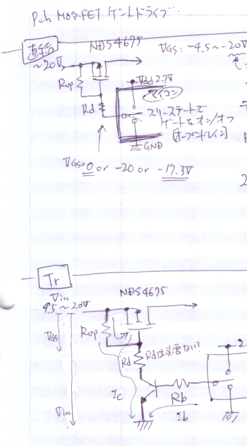 Pch MOS-FET ゲートドライブ
直結
NDS4675
VGS: -4.5~-20V
~20V
Rup
Rd
Vdd 2.7V
マイコン
スリーステートで
ゲートをオン/オフ
(オープンドレイン)
GND
VGS=0 or -20 or -17.3V
Tr
Vin
4.5~20V
NDS4675
Rup
VGS
Rd
Rdは必要ない?
Ic
Rb
Ib
Vin